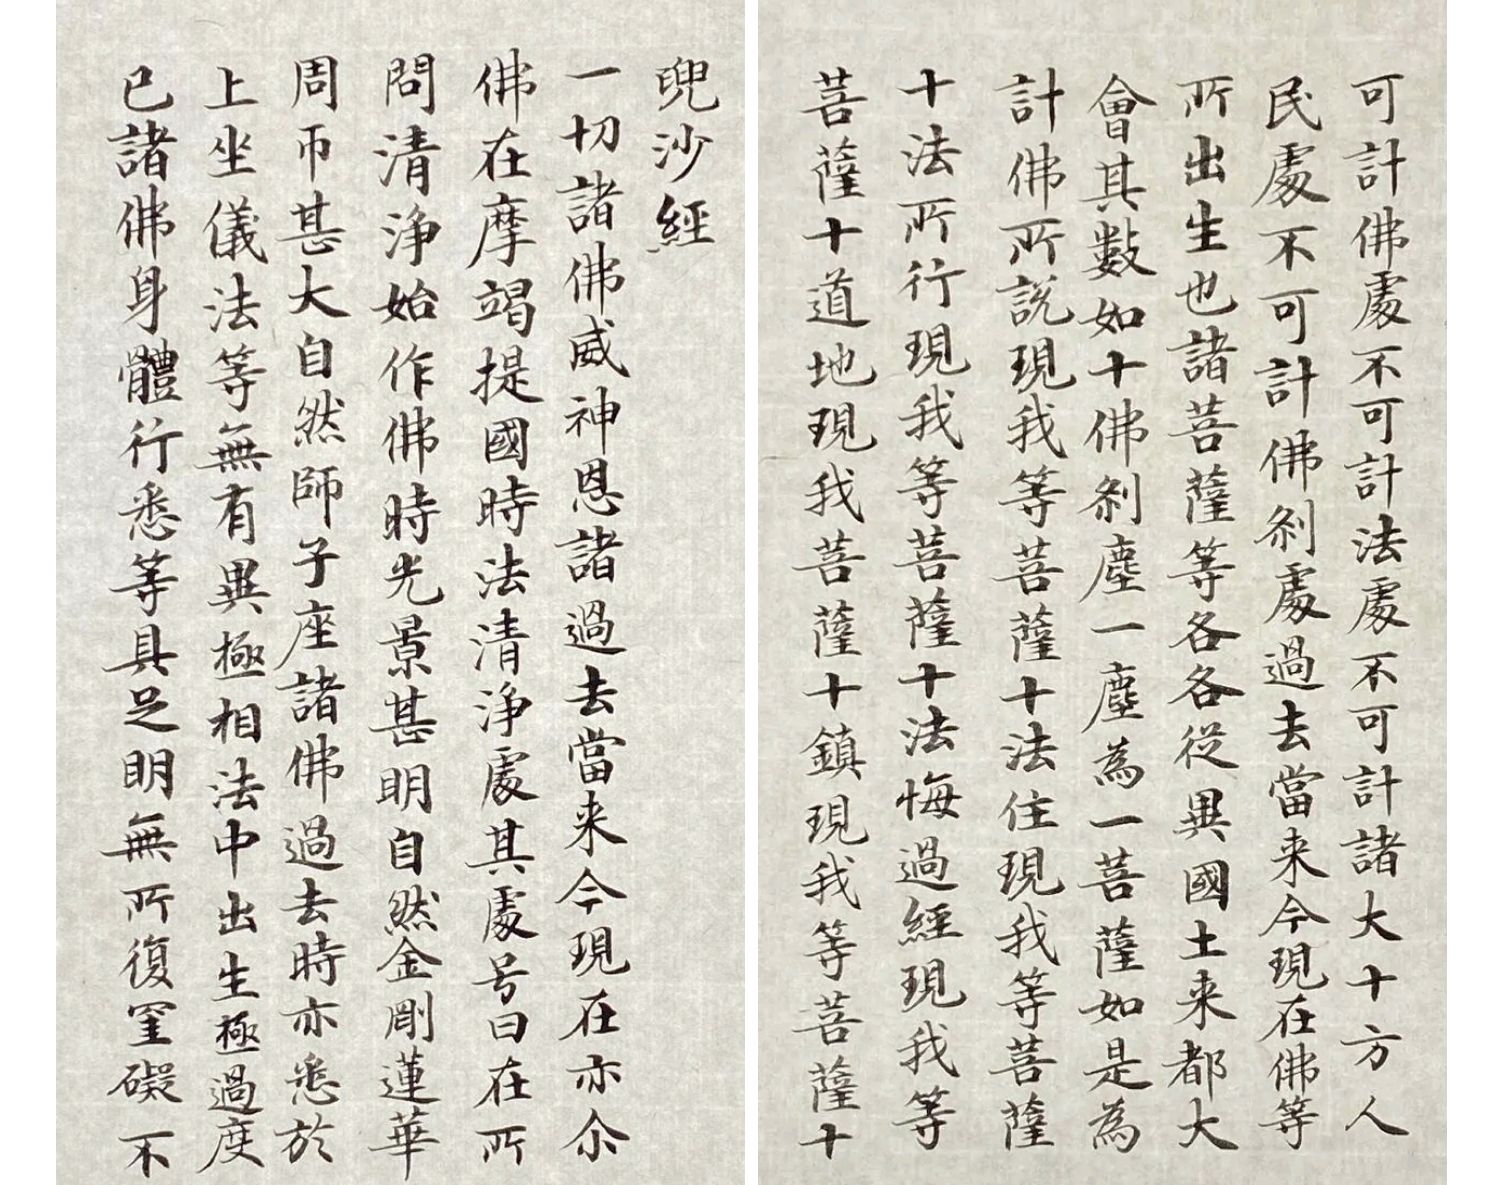 兜沙經
一切諸佛威神恩諸過去當来今現在亦尒
佛在摩竭提國時法清淨處其處号曰在所
問清淨始作佛時光景甚明自然金剛蓮華
周帀甚大自然師子座諸佛過去時亦悉於
上坐儀法等無有異極相法中出生極過度
已諸佛身體行悉等具足明無所復罣礙不
可計佛處不可計法處不可計諸大十方人
民處不可計佛剎處過去當来今現在佛等
所出生也諸菩薩等各各從異國土来都大
會其數如十佛剎塵一塵為一菩薩如是為
計佛所說現我等菩薩十法住現我等菩薩
十法所行現我等菩薩十法悔過經現我等
菩薩十道地現我菩薩十鎮現我等菩薩十